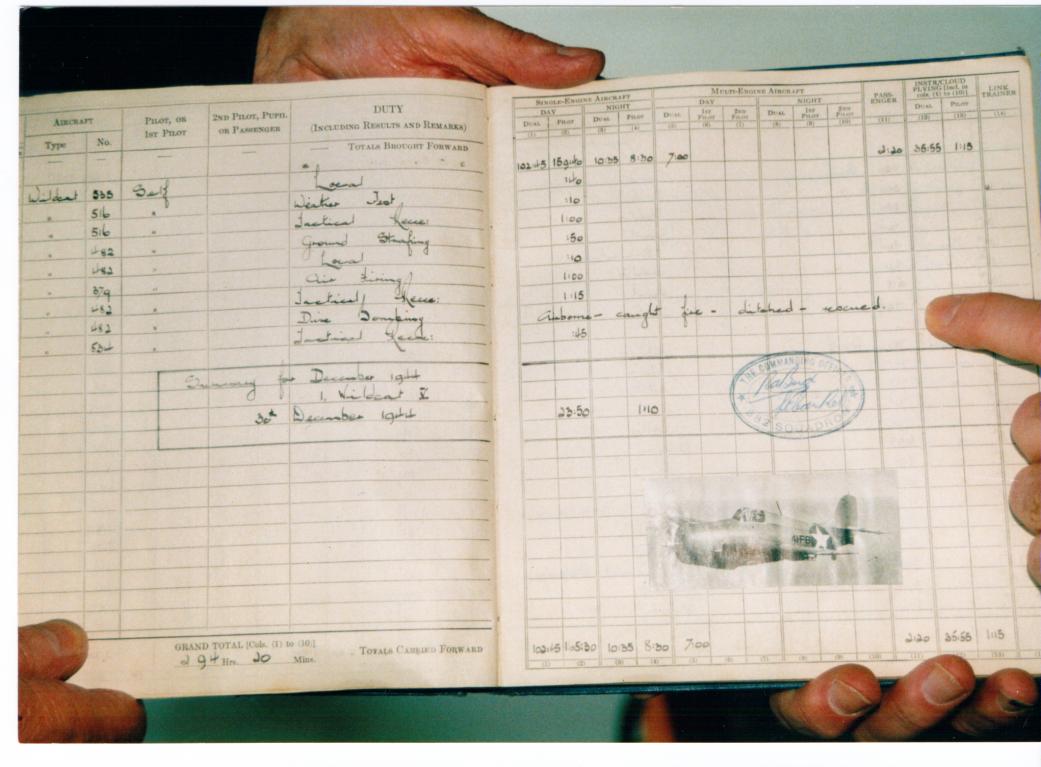 AIRCRAFT
Type No.
PILOT, OR 1ST PILOT
2ND PILOT, PUPIL OR PASSENGER
DUTY
(INCLUDING RESULTS AND REMARKS)
— — — — TOTALS BROUGHT FORWARD
Wildcat 535 Self Local
" 516 " Weather Test
" 516 " Tactical Recce:
" 482 " Ground Strafing
" 482 " Local
" 379 " Air Firing
" 482 " Tactical Recce:
" 482 " Dive Bombing
" 534 " Tactical Recce:
Summary for December 1944
1. Wildcat V
30th December 1944
GRAND TOTAL [Cols. (1) to (10)]
294 Hrs. 20 Mins.
TOTALS CARRIED FORWARD
SINGLE-ENGINE AIRCRAFT
DAY NIGHT
DUAL PILOT DUAL PILOT
(1) (2) (3) (4)
MULTI-ENGINE AIRCRAFT
DAY NIGHT
DUAL 1ST PILOT 2ND PILOT DUAL 1ST PILOT 2ND PILOT
(5) (6) (7) (8) (9) (10)
PASSENGER
(11)
INSTR/CLOUD FLYING [Incl. in cols. (1) to (10)]
DUAL PILOT
(12) (13)
LINK TRAINER
(14)
102:45 10:35 8:30 7:00 2:20 35:55 1:15
:40
:10
1:00
:50
:10
1:00
1:15
Airborne - caught fire - ditched - rescued.
:45
23:50 1:10
THE COMMANDING OFFICER
882 SQUADRON
102:45 165:30 10:35 8:30 7:00 2:20 35:55 1:15
(1) (2) (3) (4) (5) (6) (7) (8) (9) (10) (11) (12) (13)